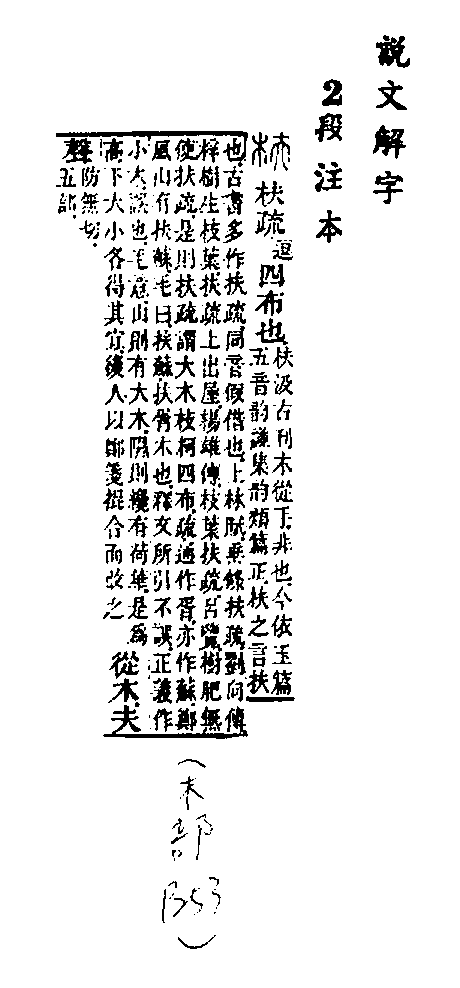 說文解字
2段注本
枎 枎疏 逗 四布也
枎汲古刊本從手非也今依玉篇
五音韵譜集韵類篇正枎之言扶
也古書多作扶疏同音假借也上林賦垂條扶疏劉向傳
梓樹生枝葉扶疏上出屋揚雄傳枝葉扶疏呂覽樹肥無
使扶疏是則扶疏謂大木枝柯四布疏通作胥亦作蘇鄭
風山有扶蘇毛曰扶蘇扶胥木也釋文所引不誤正義作
小木誤也毛意山則有大木隰則纔有荷華是爲
高下大小各得其宜後人以鄭箋掍合而改之
從木夫
聲
防無切
五部
(木部 B53)